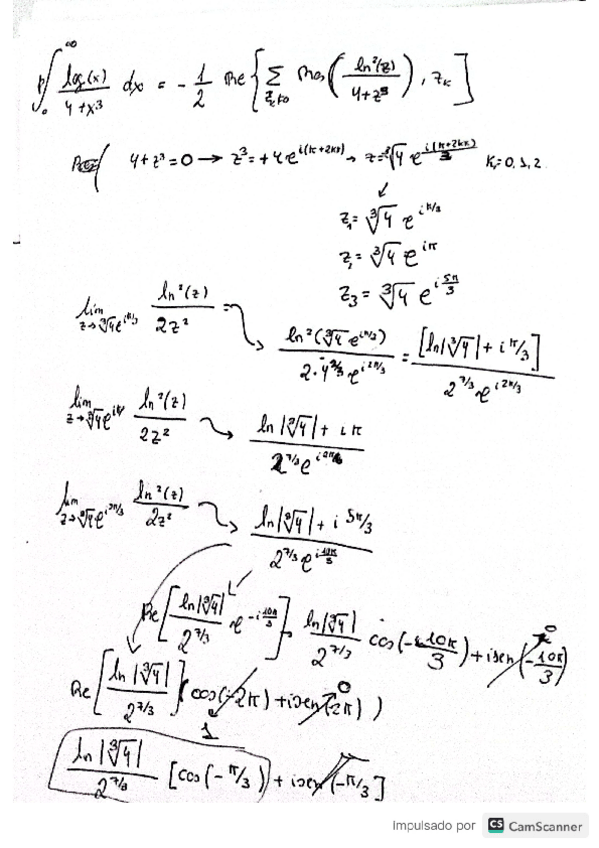 ∫₀^∞ log(x)/(4+x³) dx = -1/2 Re{ Σ_{z_k≠0} Res( ln²(z)/(4+z³) ), z_k ]
4+z³=0 → z³=+4e^{i(π+2kπ)} → z=∛4 e^{i(π+2kπ)/3} K=0,1,2.
z₁=∛4 e^{iπ/3}
z₂=∛4 e^{iπ}
z₃=∛4 e^{i5π/3}
lim_{z→∛4e^{iπ/3}} ln²(z)/2z² = ln²(∛4 e^{iπ/3})/(2·4^{2/3} e^{i2π/3}) = [ln|∛4|+iπ/3]/(2^{7/3} e^{i2π/3})
lim_{z→∛4e^{iπ}} ln²(z)/2z² → (ln|∛4|+iπ)/(2^{7/3} e^{i2π})
ln²(z)/2z² → (ln|∛4|+i 5π/3)/(2^{7/3} e^{i10π/3})
Re[ ln|∛4|/2^{7/3} e^{-i10π/3} ] ln|∛4|/2^{7/3} cos(-10π/3)+isen(-10π/3) 0
Re[ ln|∛4|/2^{7/3} ](cos(-2π)+isen(-2π)) 1 0
ln|∛4|/2^{7/3} [cos(-π/3)+isen(-π/3]
Impulsado por CS CamScanner